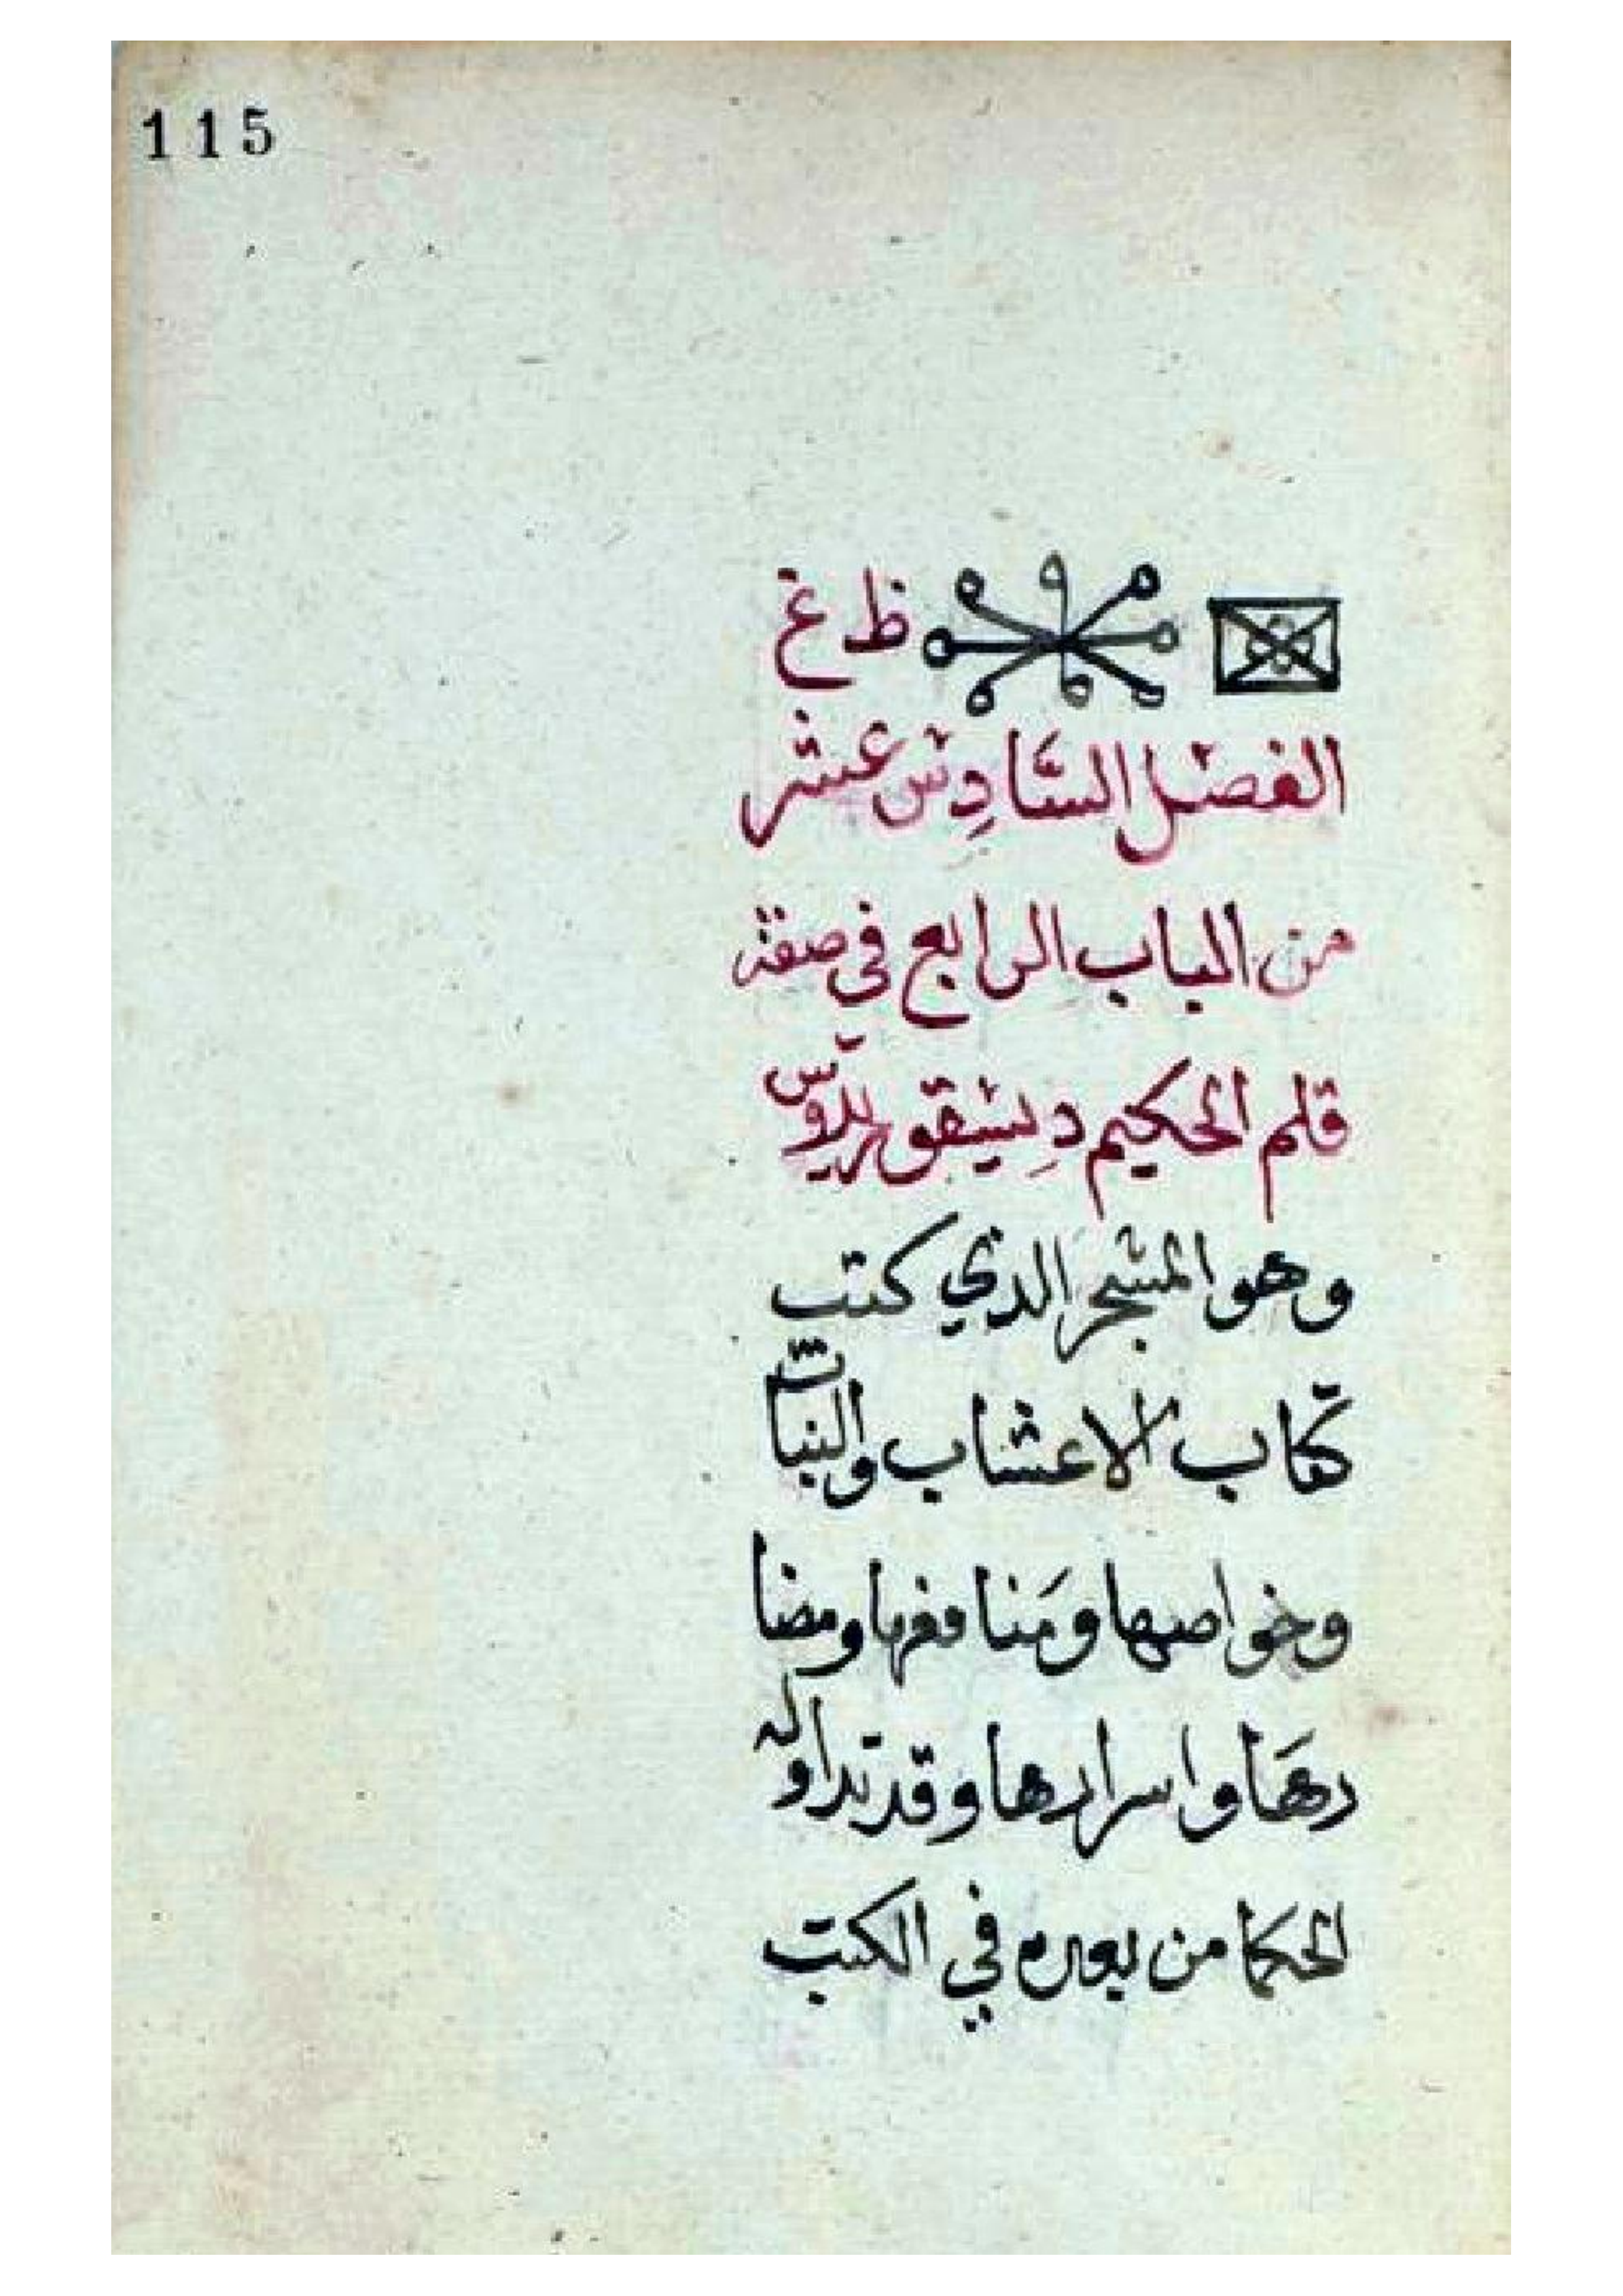 115
ظ غ
الفصل السَّادِس عشر
من الباب الرابع في صفة
قلم الحكيم دِيسقوريدوس
وهو المشجر الذي كتب
كتاب الاعشاب والنبات
وخواصها ومَنافعها ومضا
رهَا واسرارها وقد تداوله
الحكما من بعده في الكتب